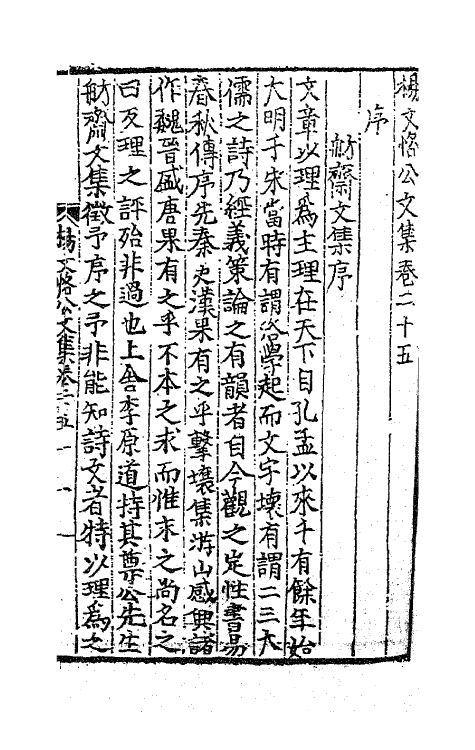 楊文恪公文集卷二十五
序
舫齋文集序
文章以理爲主理在天下自孔孟以來千有餘年始
大明于宋當時有謂洛學起而文字壞有謂二三大
儒之詩乃經義策論之有韻者自今觀之定性書易
春秋傳序先秦史漢果有之乎擊壤集游山感興諸
作魏晉盛唐果有之乎不本之求而惟末之尚名之
曰反理之評殆非過也上舍李原道持其尊公先生
舫齋文集徵予序之予非能知詩文者特以理爲之
楊文恪公文集卷二十五 一